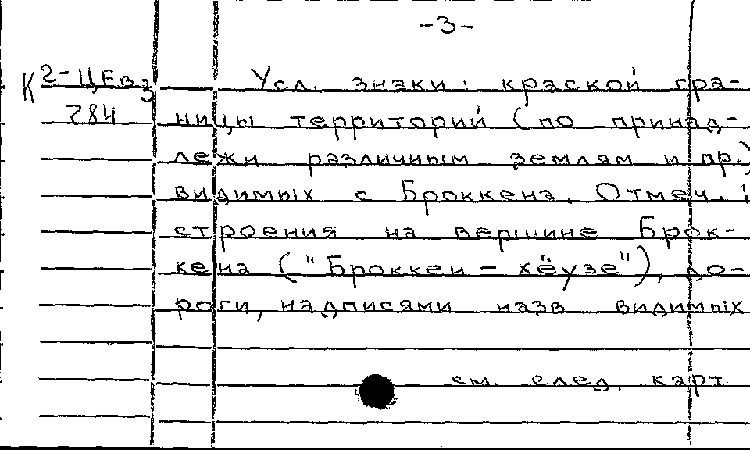 -3-
К 2-ЦЕвз
284
Усл. знаки: краской гра-
ницы территорий (по принад-
лежи различным землям и пр.)
видимых с Броккена. Отмеч.
строения на вершине Брок-
кена ("Броккен - хёузе"), до-
роги, надписями назв видимых
см. след. карт